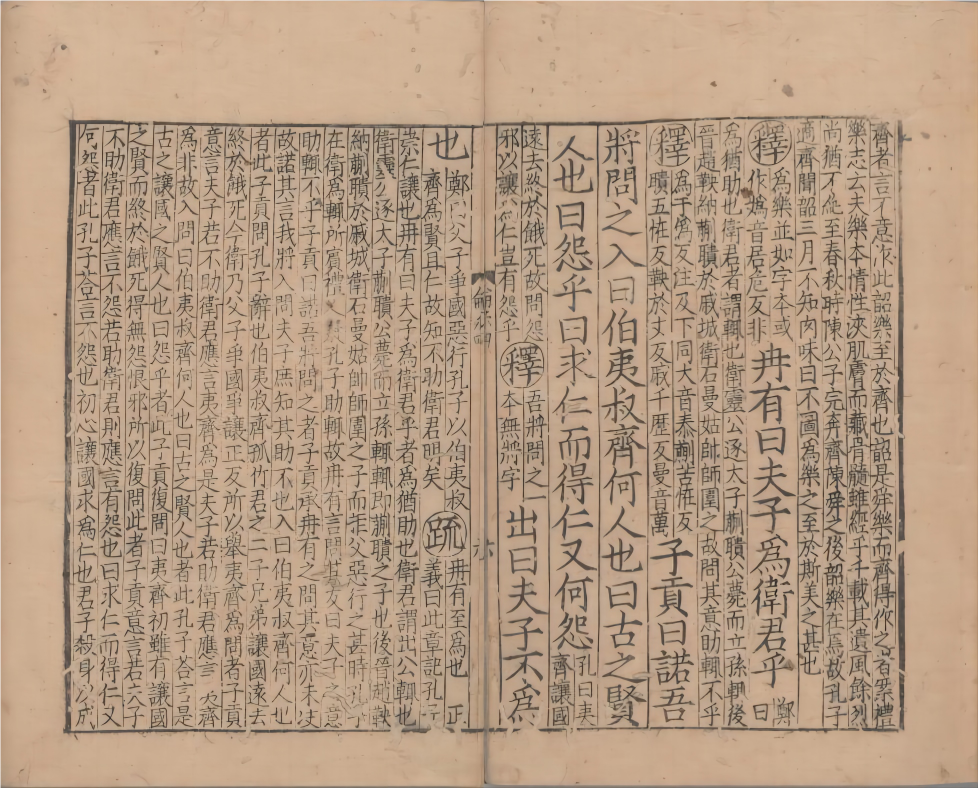 齊者言不意作此韶樂至於齊也韶是舜樂而齊得作之者案禮
樂志云夫樂本情性浹肌膚而藏骨髓雖經乎千載其遺風餘烈
尚猶不絶至春秋時陳公子完奔齊陳舜之後韶樂在焉故孔子
適齊聞韶三月不知肉味曰不圖為樂之至於斯美之甚也
釋為樂並如字本或作媯音居危反非冉有曰夫子為衛君乎鄭曰
為猶助也衛君者謂輒也衛靈公逐太子蒯聵公薨而立孫輒後
晉趙鞅納蒯聵於戚城衛石曼姑帥師圍之故問其意助輒不乎
釋為于偽反注及下同大音泰蒯苦怪反聵五怪反鞅於丈反戚千歷反曼音萬子貢曰諾吾
將問之入曰伯夷叔齊何人也曰古之賢
人也曰怨乎曰求仁而得仁又何怨孔曰夷齊讓國
遠去終於餓死故問怨邪以讓為仁豈有怨乎釋吾將問之一本無將字出曰夫子不為
也鄭曰父子爭國惡行孔子以伯夷叔齊為賢且仁故知不助衛君明矣疏冉有至為也正義曰此章記孔子
崇仁讓也冉有曰夫子為衛君乎者為猶助也衛君謂出公輒也
衛靈公逐太子蒯聵公薨而立孫輒輒即蒯聵之子也後晉趙鞅
納蒯聵於戚城衛石曼姑帥師圍之子而拒父惡行之甚時孔子
在衛為輒所賓禮人疑孔子助輒故冉有言問其友曰夫子之意
助輒不乎子貢曰諾吾將問之者子貢承冉有之問其意亦未决
故諾其言我將入問夫子庶知其助不也入曰伯夷叔齊何人也
者此子貢問孔子辭也伯夷叔齊孤竹君之二子兄弟讓國遠去
終於餓死今衛乃父子爭國爭讓正反所以舉夷齊為問者子貢
意言夫子若不助衛君應言夷齊為是夫子若助衛君應言夷齊
為非故入問曰伯夷叔齊何人也曰古之賢人也者此孔子荅言是
古之讓國之賢人也曰怨乎者此子貢復問曰夷齊初雖有讓國
之賢而終於餓死得無怨恨邪所以復問此者子貢意言若夫子
不助衛君應言不怨若助衛君則應言有怨也曰求仁而得仁又
何怨者此孔子荅言不怨也初心讓國求為仁也君子殺身以成